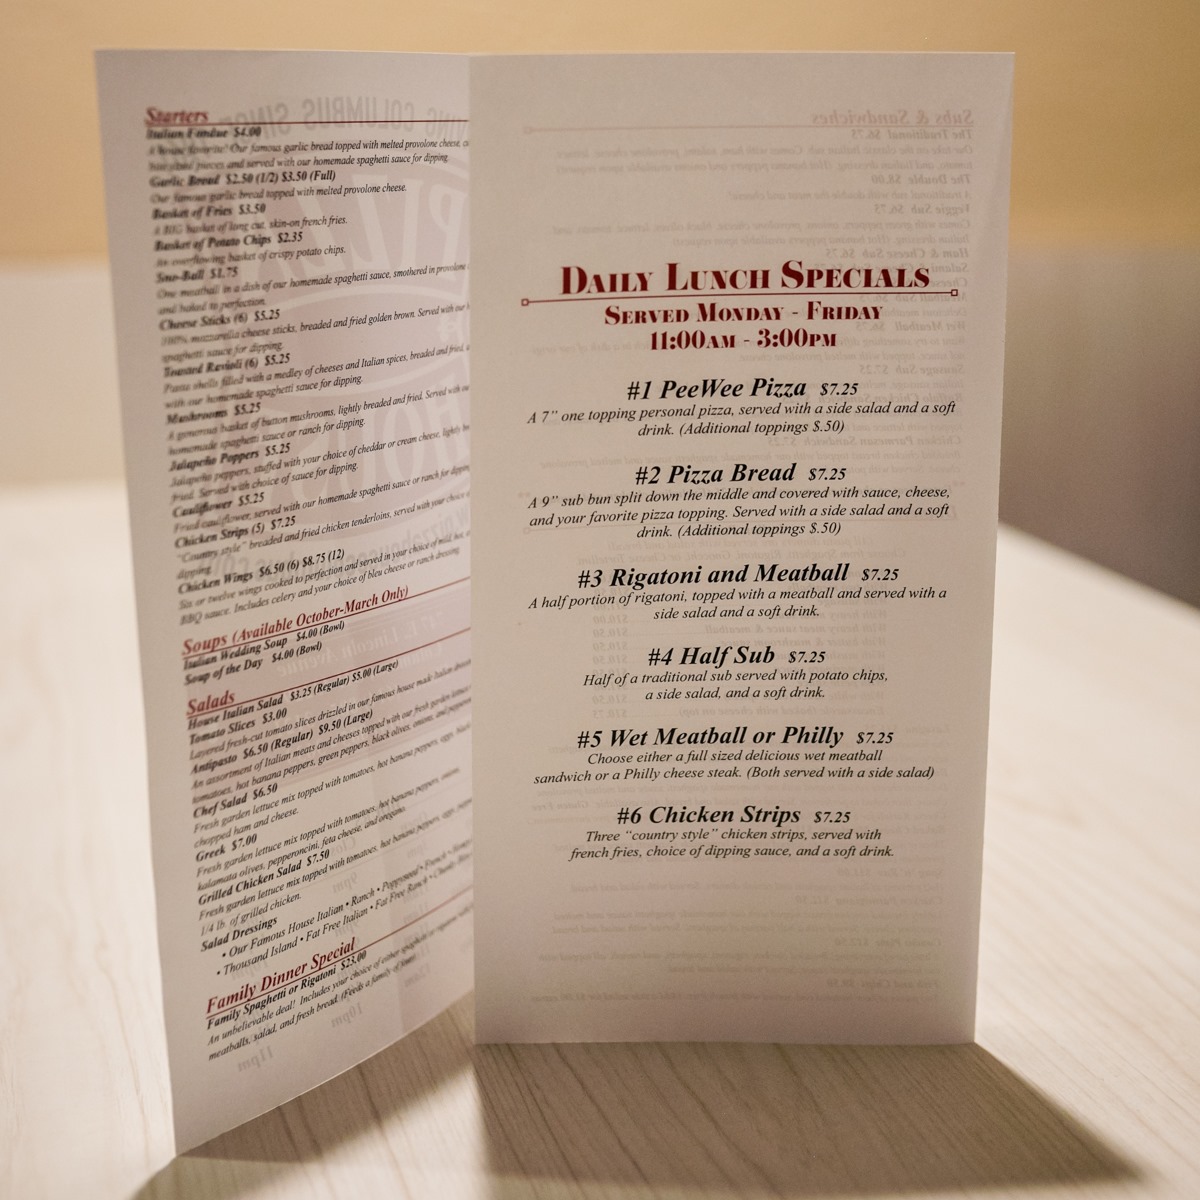 Starters
Italian Fondue $4.00
A house favorite! Our famous garlic bread topped with melted provolone cheese,
pieces and served with our homemade spaghetti sauce for dipping.
Garlic Bread $2.50 (1/2) $3.50 (Full)
Our famous garlic bread topped with melted provolone cheese.
Basket of Fries $3.50
A BIG basket of long cut, skin-on french fries.
Basket of Potato Chips $2.35
An overflowing basket of crispy potato chips.
Sno-Ball $1.75
One meatball in a dish of our homemade spaghetti sauce, smothered in provolone
and baked to perfection.
Cheese Sticks (6) $5.25
100% mozzarella cheese sticks, breaded and fried golden brown. Served with our
spaghetti sauce for dipping.
Toasted Ravioli (6) $5.25
Pasta shells filled with a medley of cheeses and Italian spices, breaded and fried,
with our homemade spaghetti sauce for dipping.
Mushrooms $5.25
A generous basket of button mushrooms, lightly breaded and fried. Served with our
homemade spaghetti sauce or ranch for dipping.
Jalapeño Poppers $5.25
Jalapeño peppers, stuffed with your choice of cheddar or cream cheese, lightly
fried. Served with choice of sauce for dipping.
Cauliflower $5.25
Fried cauliflower, served with our homemade spaghetti sauce or ranch for dipping
Chicken Strips (5) $7.25
"Country style" breaded and fried chicken tenderloins, served with your choice
dipping.
Chicken Wings $6.50 (6) $8.75 (12)
Six or twelve wings cooked to perfection and served in your choice of mild, hot,
BBQ sauce. Includes celery and your choice of bleu cheese or ranch dressing.
Soups (Available October-March Only)
Italian Wedding Soup $4.00 (Bowl)
Soup of the Day $4.00 (Bowl)
Salads
House Italian Salad $3.25 (Regular) $5.00 (Large)
Tomato Slices $3.00
Layered fresh-cut tomato slices drizzled in our famous house made Italian
Antipasto $6.50 (Regular) $9.50 (Large)
An assortment of Italian meats and cheeses topped with our fresh garden lettuce
tomatoes, hot banana peppers, green peppers, black olives, onions, and
Chef Salad $6.50
Fresh garden lettuce mix topped with tomatoes, hot banana peppers, eggs,
chopped ham and cheese.
Greek $7.00
Fresh garden lettuce mix topped with tomatoes, hot banana peppers, onions,
kalamata olives, pepperoncini, feta cheese, and oregano.
Grilled Chicken Salad $7.50
Fresh garden lettuce mix topped with tomatoes, hot banana peppers, eggs,
1/4 lb. of grilled chicken.
Salad Dressings
• Our Famous House Italian • Ranch • Poppyseed • French •
• Thousand Island • Fat Free Italian • Fat Free Ranch •
Family Dinner Special
Family Spaghetti or Rigatoni $23.00
An unbelievable deal! Includes your choice of either spaghetti or rigatoni
meatballs, salad, and fresh bread. (Feeds a family of four)
Daily Lunch Specials
Served Monday - Friday
11:00am - 3:00pm
#1 PeeWee Pizza $7.25
A 7" one topping personal pizza, served with a side salad and a soft
drink. (Additional toppings $.50)
#2 Pizza Bread $7.25
A 9" sub bun split down the middle and covered with sauce, cheese,
and your favorite pizza topping. Served with a side salad and a soft
drink. (Additional toppings $.50)
#3 Rigatoni and Meatball $7.25
A half portion of rigatoni, topped with a meatball and served with a
side salad and a soft drink.
#4 Half Sub $7.25
Half of a traditional sub served with potato chips,
a side salad, and a soft drink.
#5 Wet Meatball or Philly $7.25
Choose either a full sized delicious wet meatball
sandwich or a Philly cheese steak. (Both served with a side salad)
#6 Chicken Strips $7.25
Three "country style" chicken strips, served with
french fries, choice of dipping sauce, and a soft drink.